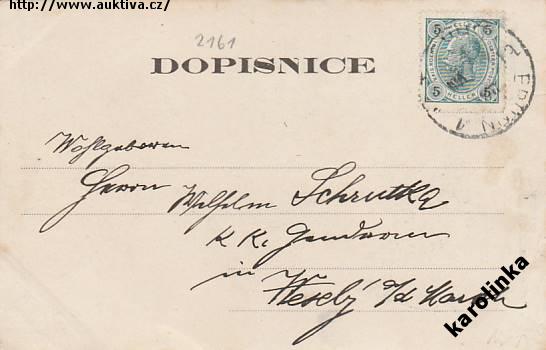 http://www.auktiva.cz/
2161
DOPISNICE
5 5
5 HELLER 5
Wohlgeboren
Herrn Wilhelm Schrutka
K. K. Gendarm
in
Wesely a/d March
karolinka